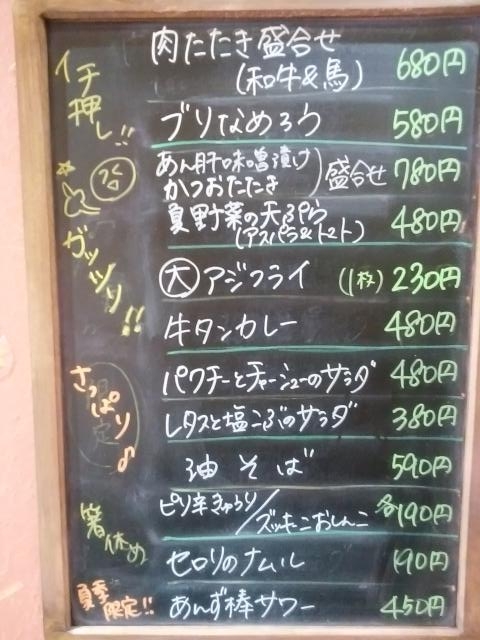 イチ押し!!
肉たたき盛合せ
(和牛&馬) 680円
ブリなめろう 580円
あん肝味噌漬け
かつおたたき 盛合せ 780円
夏野菜の天ぷら
(アスパラ&トマト) 480円
ガッツリ!!
大 アジフライ (1枚) 230円
牛タンカレー 480円
さっぱり♪
パクチーとチャーシューのサラダ 480円
レタスと塩こぶのサラダ 380円
油そば 590円
箸休め
ピリ辛きゅうり/
ズッキーニおしんこ 各190円
セロリのナムル 190円
夏季限定!!
あんず棒サワー 450円